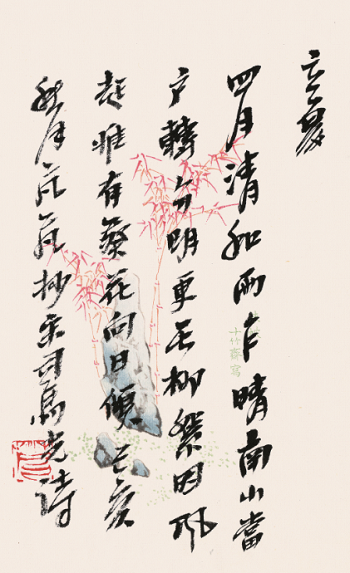 立夏
四月清和雨乍晴南山當
户轉分明更无柳絮因風
起惟有葵花向日傾己亥
秋月芃芃抄宋司馬光詩
十竹齋寫